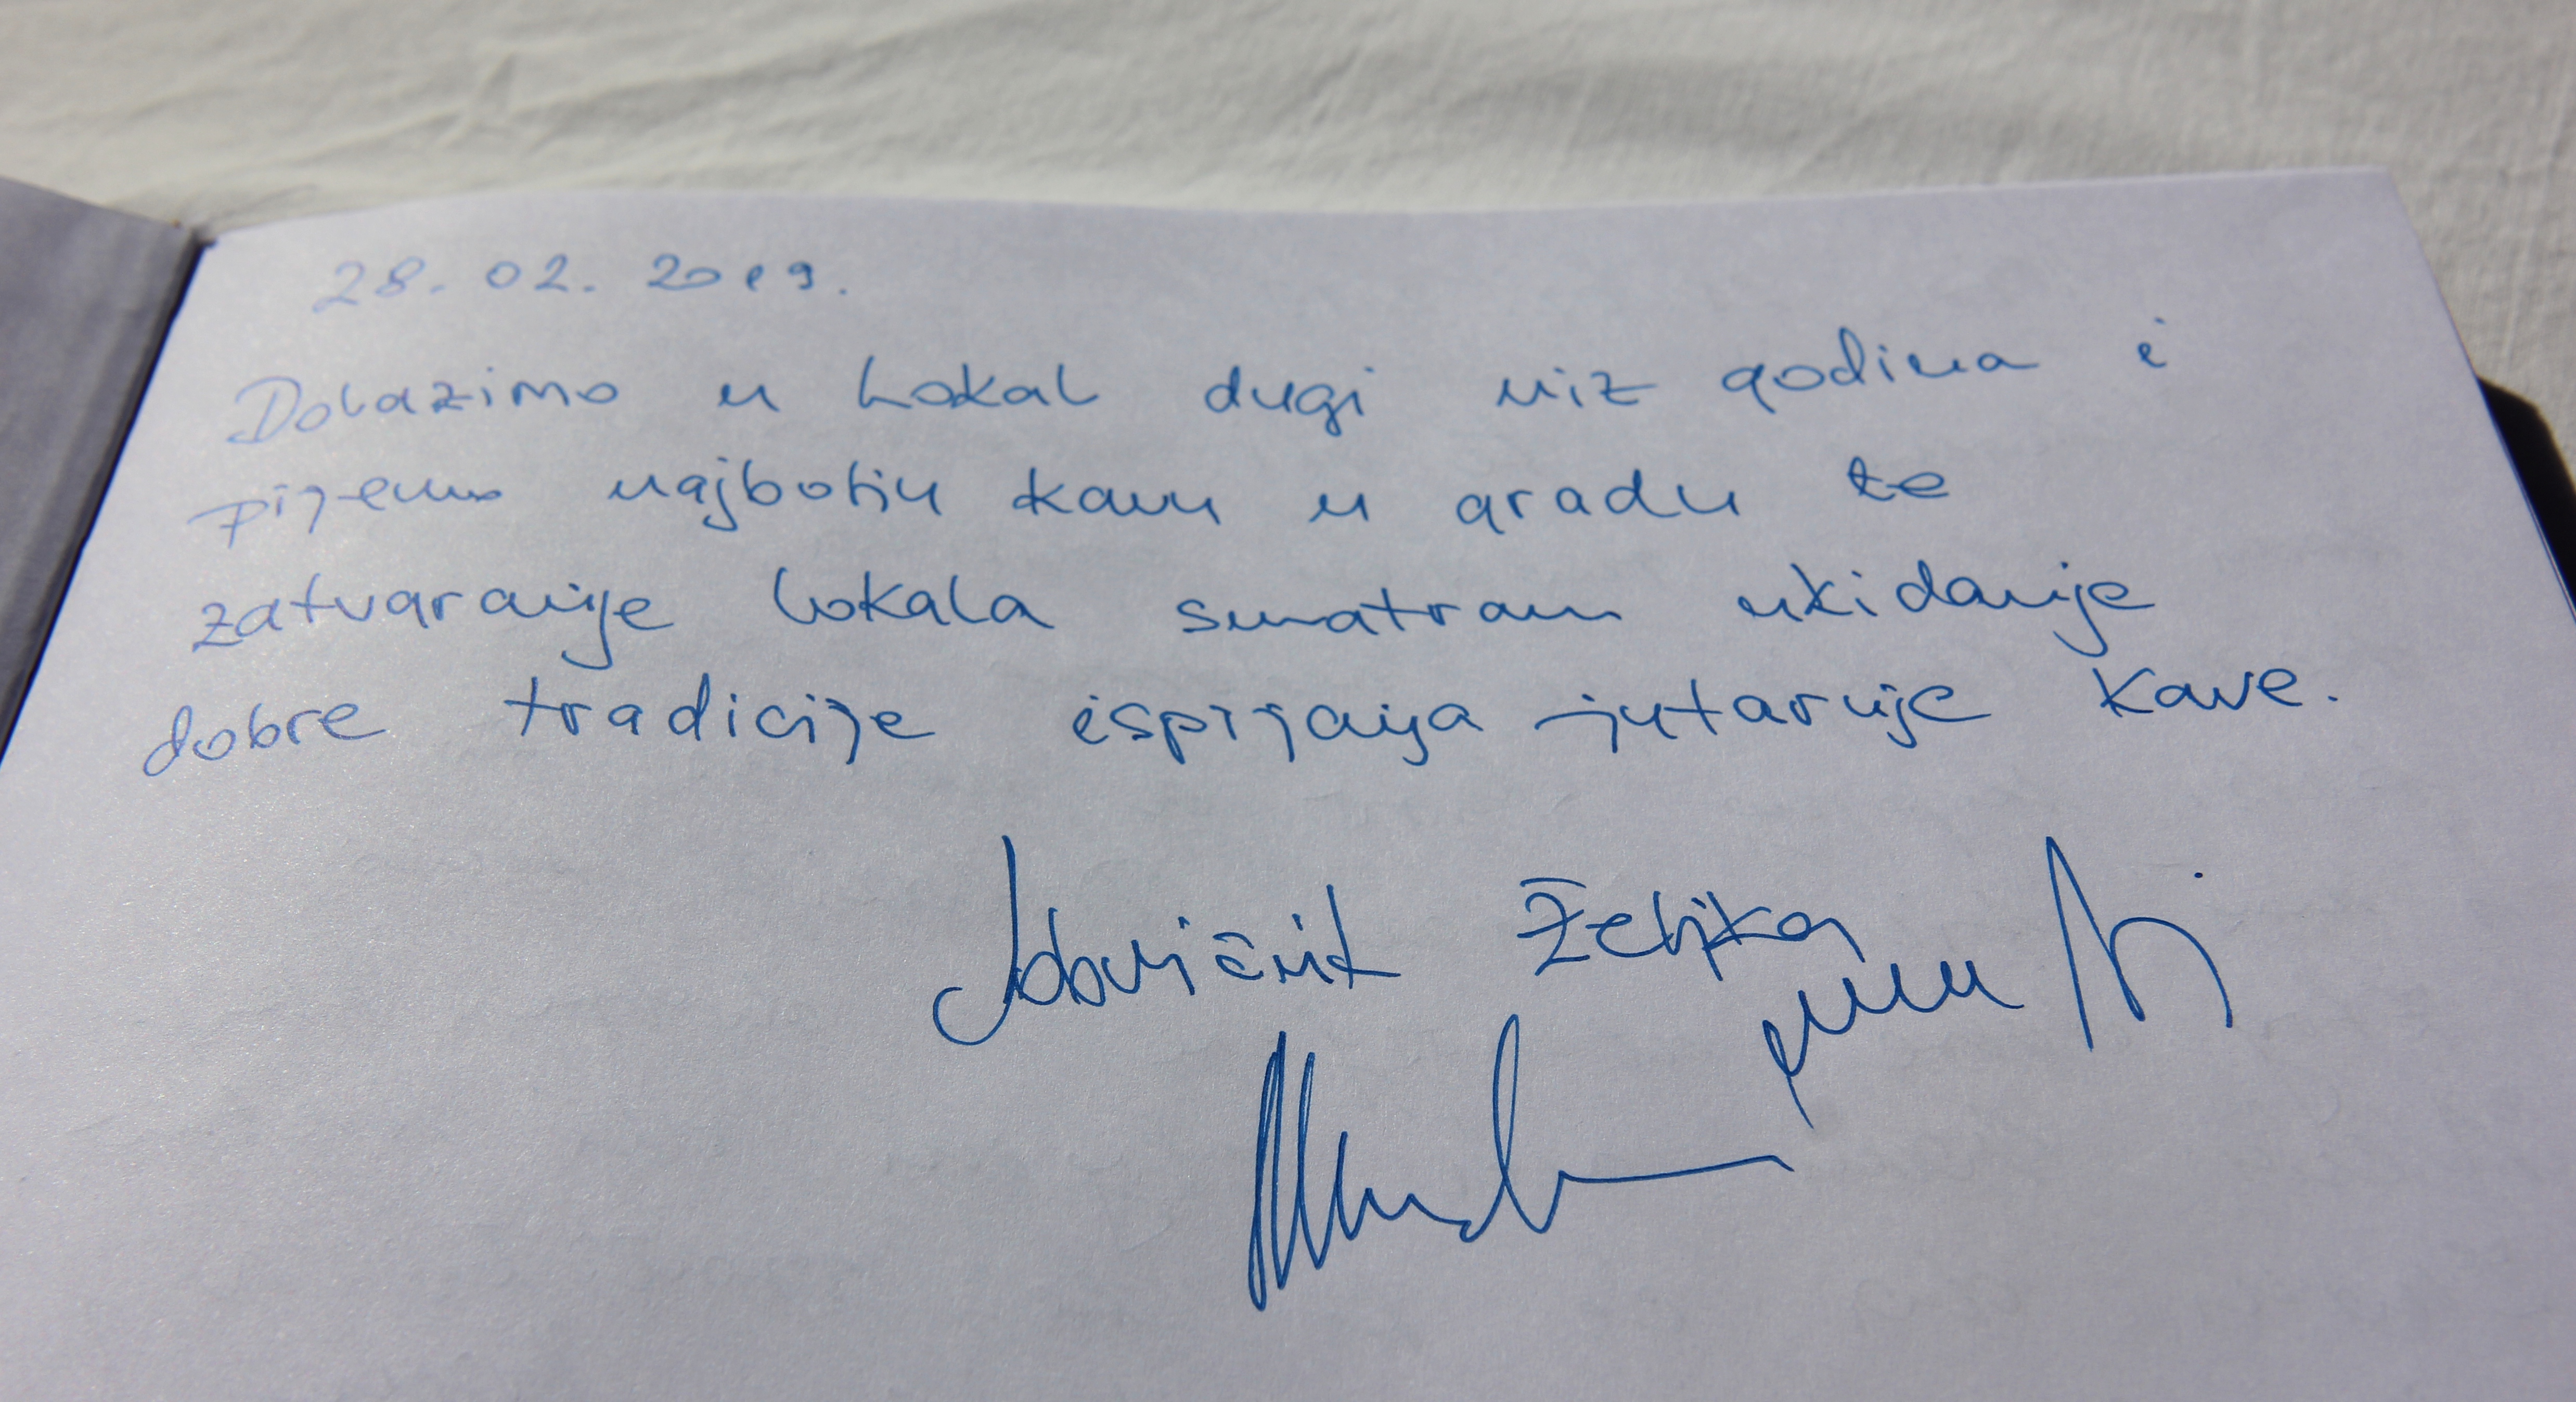 28. 02. 2019.
Dolazimo u Lokal dugi niz godina i
pijemo najbolju kavu u gradu te
zatvaranje lokala smatram ukidanje
dobre tradicije ispijanja jutarnje kave.
Željka